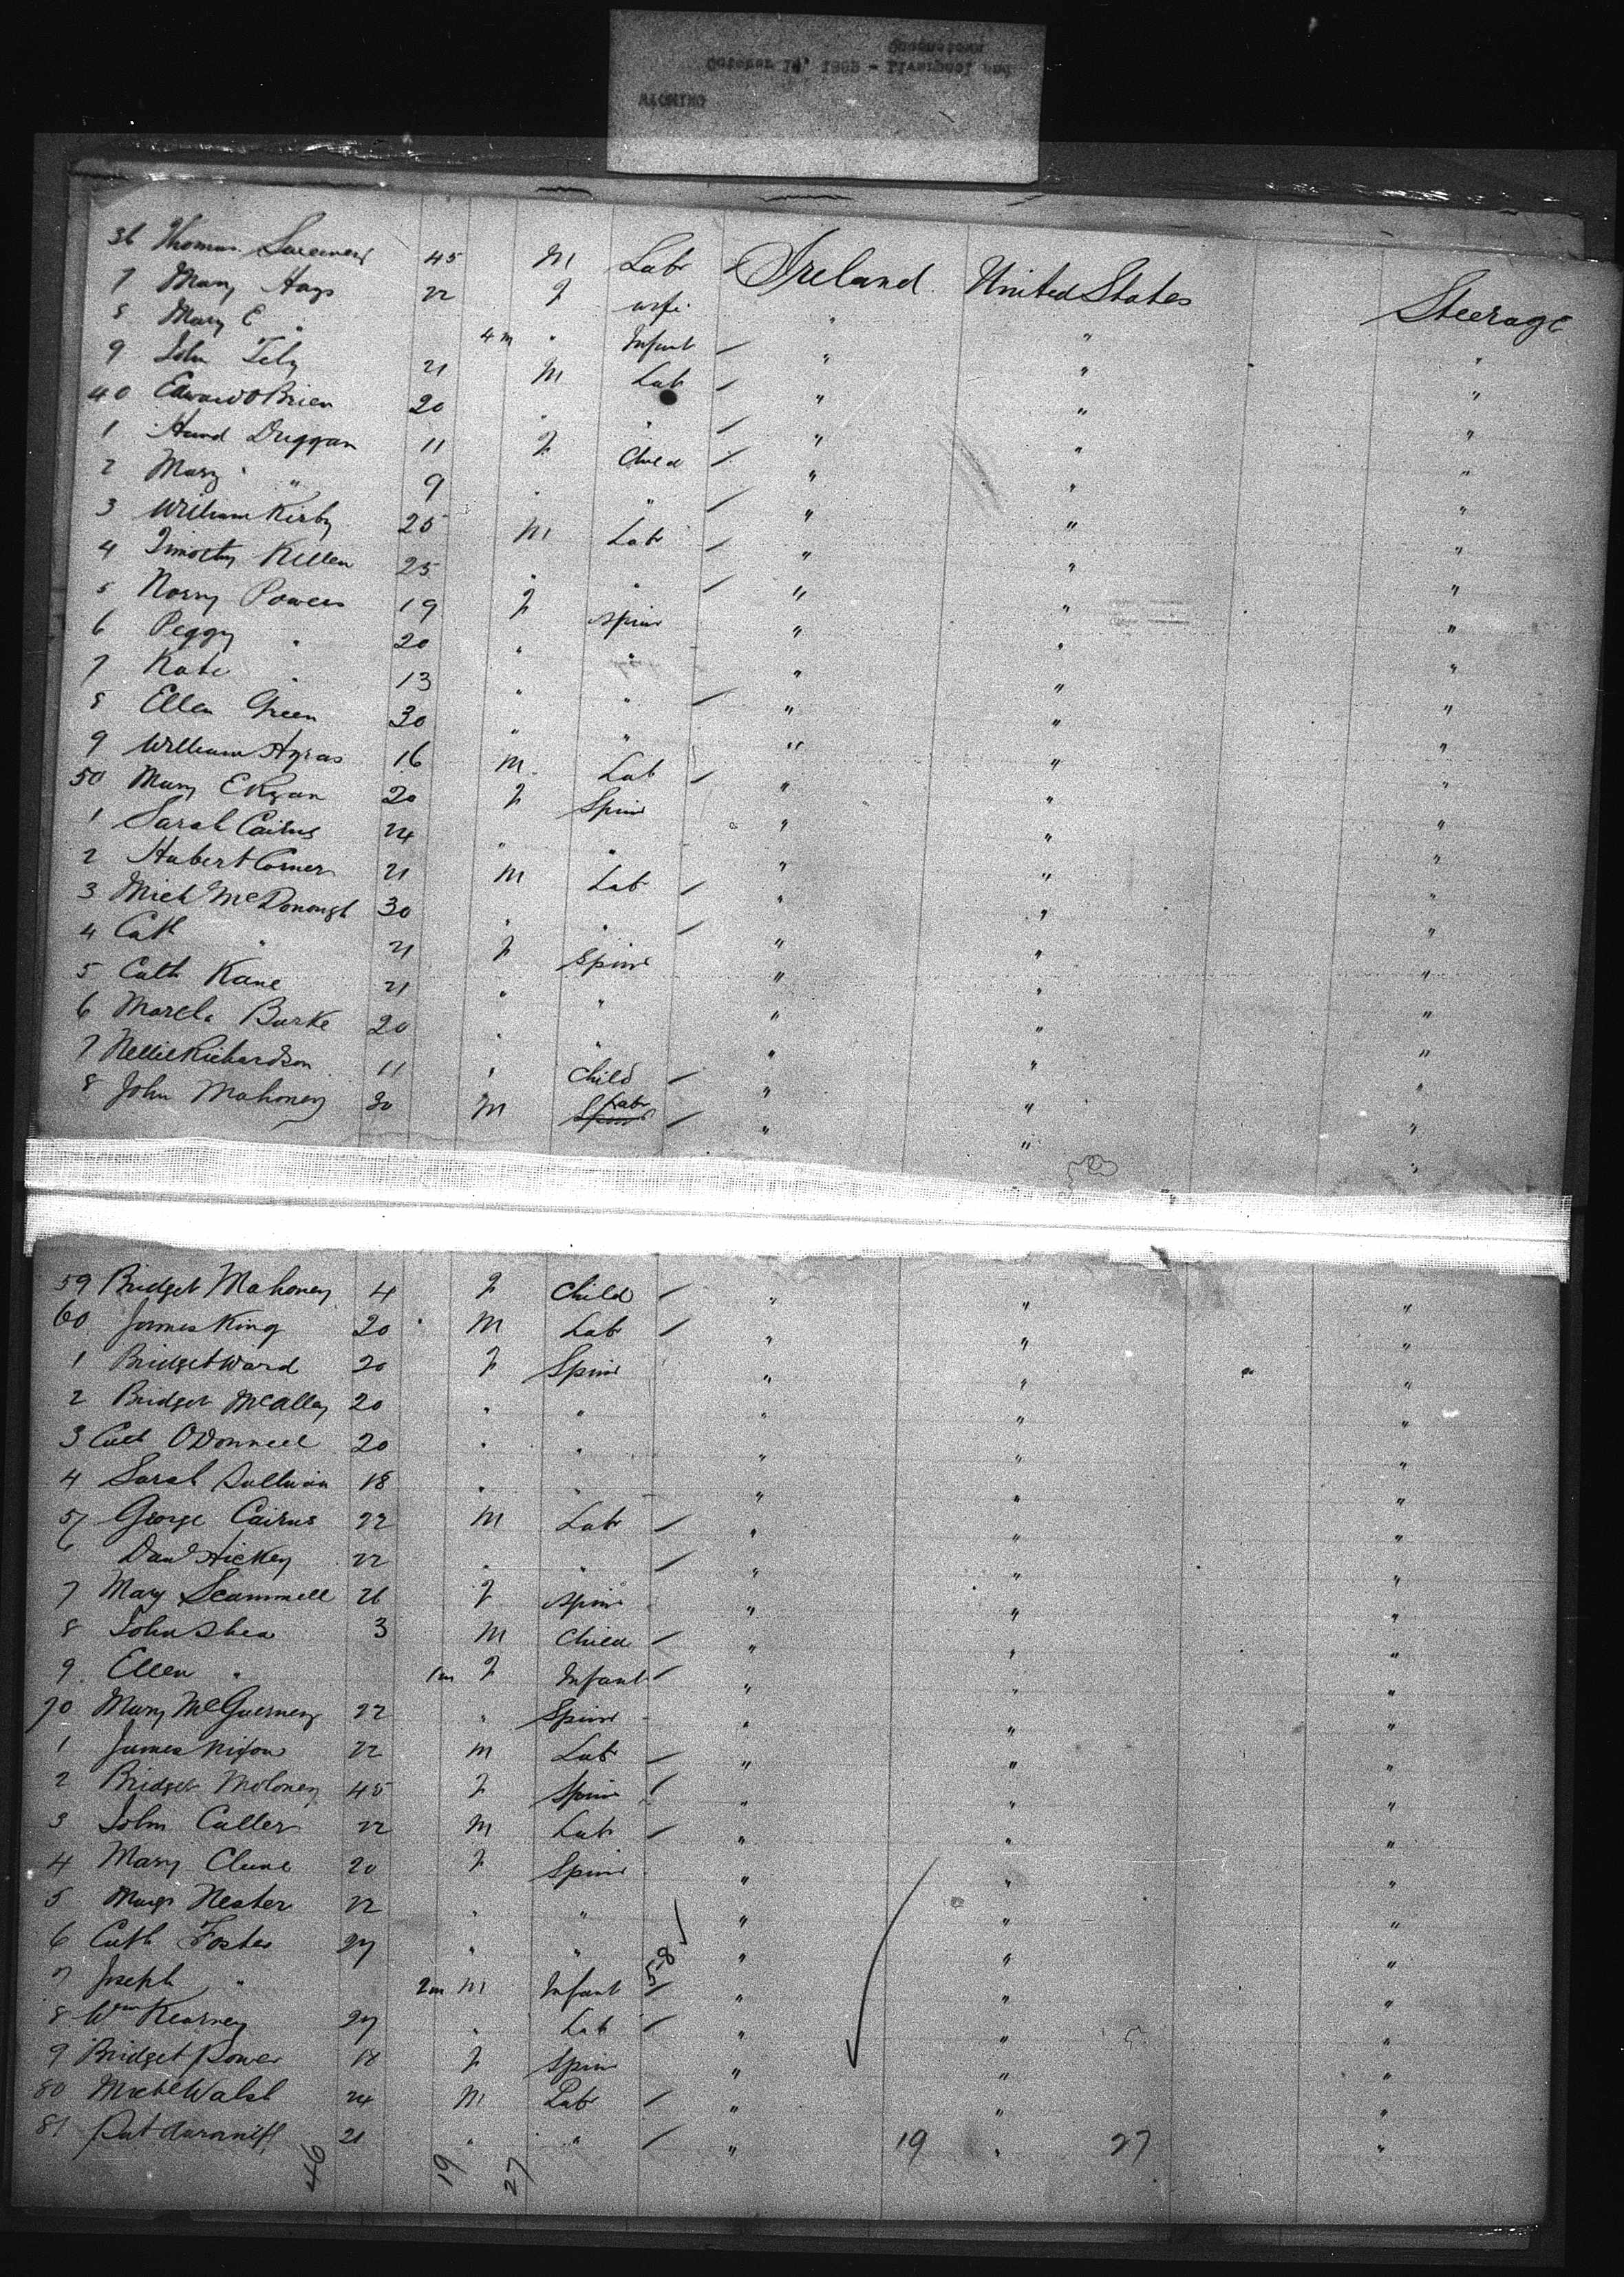 36 Thomas 45 M Labr Ireland United States Steerage
7 Mary Hays 22 F wife " " "
8 Mary E " 4 m " Infant " " "
9 John 21 M Lab " " "
40 Edward OBrien 20 " " " " "
1 Duggan 11 F Child " " "
2 Mary " 9 " " " " "
3 William Kirby 25 M Labr " " "
4 Timothy Killen 25 " " " " "
5 Norry Powers 19 F Spinr " " "
6 Peggy " 20 " " " " "
7 Kate " 13 " " " " "
8 Ellen Green 30 " " " " "
9 William 16 M Lab " " "
50 Mary E Ryan 20 F Spinr " " "
1 Sarah Cairns 24 " " " " "
2 Hubert Comer 21 M Lab " " "
3 Mich McDonough 30 " " " " "
4 Cath " 21 F Spinr " " "
5 Cath Kane 21 " " " " "
6 Marcla Burke 20 " " " " "
7 Nellie Richardson 11 " Child " " "
8 John Mahoney 30 M Labr " " "
59 Bridget Mahoney 4 F Child " " "
60 James King 20 M Labr " " "
1 Bridget Ward 20 F Spinr " " "
2 Bridget McAlley 20 " " " " "
3 Cath ODonnell 20 " " " " "
4 Sarah Sullivan 18 " " " " "
5 George Cairns 22 M Labr " " "
6 Danl Hickey 22 " " " " "
7 Mary Scammell 26 F Spinr " " "
8 John Shea 3 M Child " " "
9 Ellen " 1m F Infant " " "
70 Mary McGuerney 22 " Spinr " " "
1 James Nixon 22 M Labr " " "
2 Bridget Moloney 45 F Spinr " " "
3 John Culler 22 M Labr " " "
4 Mary Clune 20 F Spinr " " "
5 Margt Nester 22 " " " " "
6 Cath Foster 27 " " " " "
7 Joseph " 2m M Infant 58 " " "
8 Wm Kearney 27 " Lab " " "
9 Bridget Power 18 F Spinr " " "
80 Michl Walsh 24 M Labr " " "
81 Pat 21 " " " 19 " 27 "
46 19 27